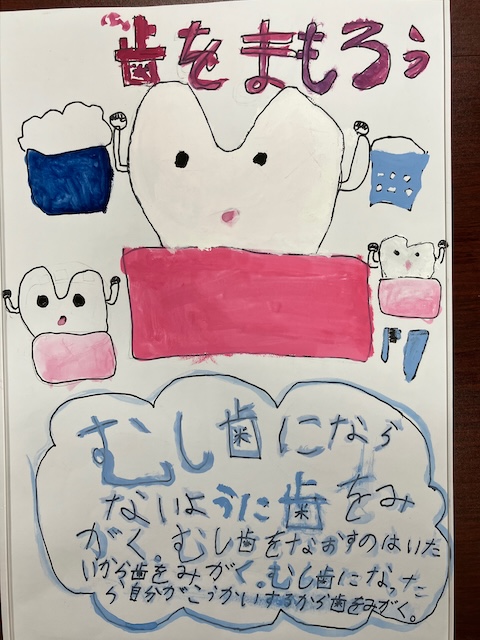 歯をまもろう
むし歯になら
ないように歯をみ
がく。むし歯をなおすのはいた
いから歯をみがく。むし歯になった
ら自分がこうかいするから歯をみがく。